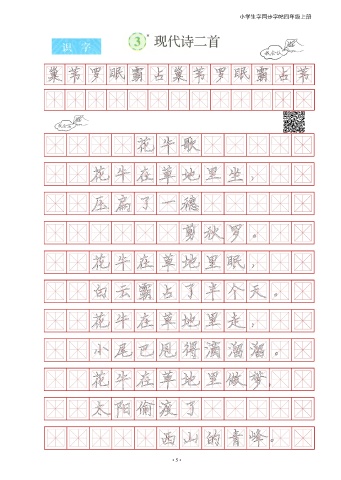 小学生字同步字帖四年级上册
识字
3* 现代诗二首
我会认
巢苇罗眠霸占巢苇罗眠霸占苇
我会写
花牛歌
花牛在草地里坐，
压扁了一穗
剪秋罗。
花牛在草地里眠，
白云霸占了半个天。
花牛在草地里走，
小尾巴甩得滴溜溜。
花牛在草地里做梦，
太阳偷渡了
西山的青峰。
·5·